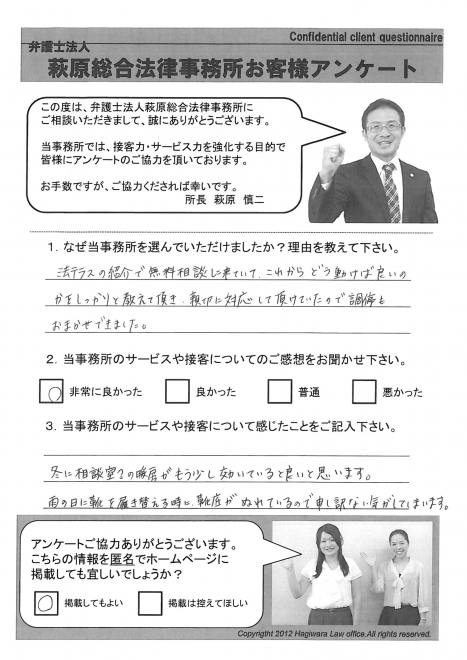 Confidential client questionnaire
弁護士法人
萩原総合法律事務所お客様アンケート
この度は、弁護士法人萩原総合法律事務所に
ご相談いただきまして、誠にありがとうございます。
当事務所では、接客力・サービス力を強化する目的で
皆様にアンケートのご協力を頂いております。
お手数ですが、ご協力くだされば幸いです。
所長 萩原 慎二
1. なぜ当事務所を選んでいただけましたか？理由を教えて下さい。
法テラスの紹介で無料相談に来ていて、これからどう動けば良いの
かをしっかりと教えて頂き、親切に対応して頂けていたので調停も
おまかせできました。
2. 当事務所のサービスや接客についてのご感想をお聞かせ下さい。
非常に良かった 良かった 普通 悪かった
3. 当事務所のサービスや接客について感じたことをご記入下さい。
冬に相談室2の暖房がもう少し効いていると良いと思います。
雨の日に靴を履き替える時に、靴底がぬれているので申し訳ない気がしてしまいます。
アンケートご協力ありがとうございます。
こちらの情報を匿名でホームページに
掲載しても宜しいでしょうか？
掲載してもよい 掲載は控えてほしい
Copyright 2012 Hagiwara Law office.All rights reserved.